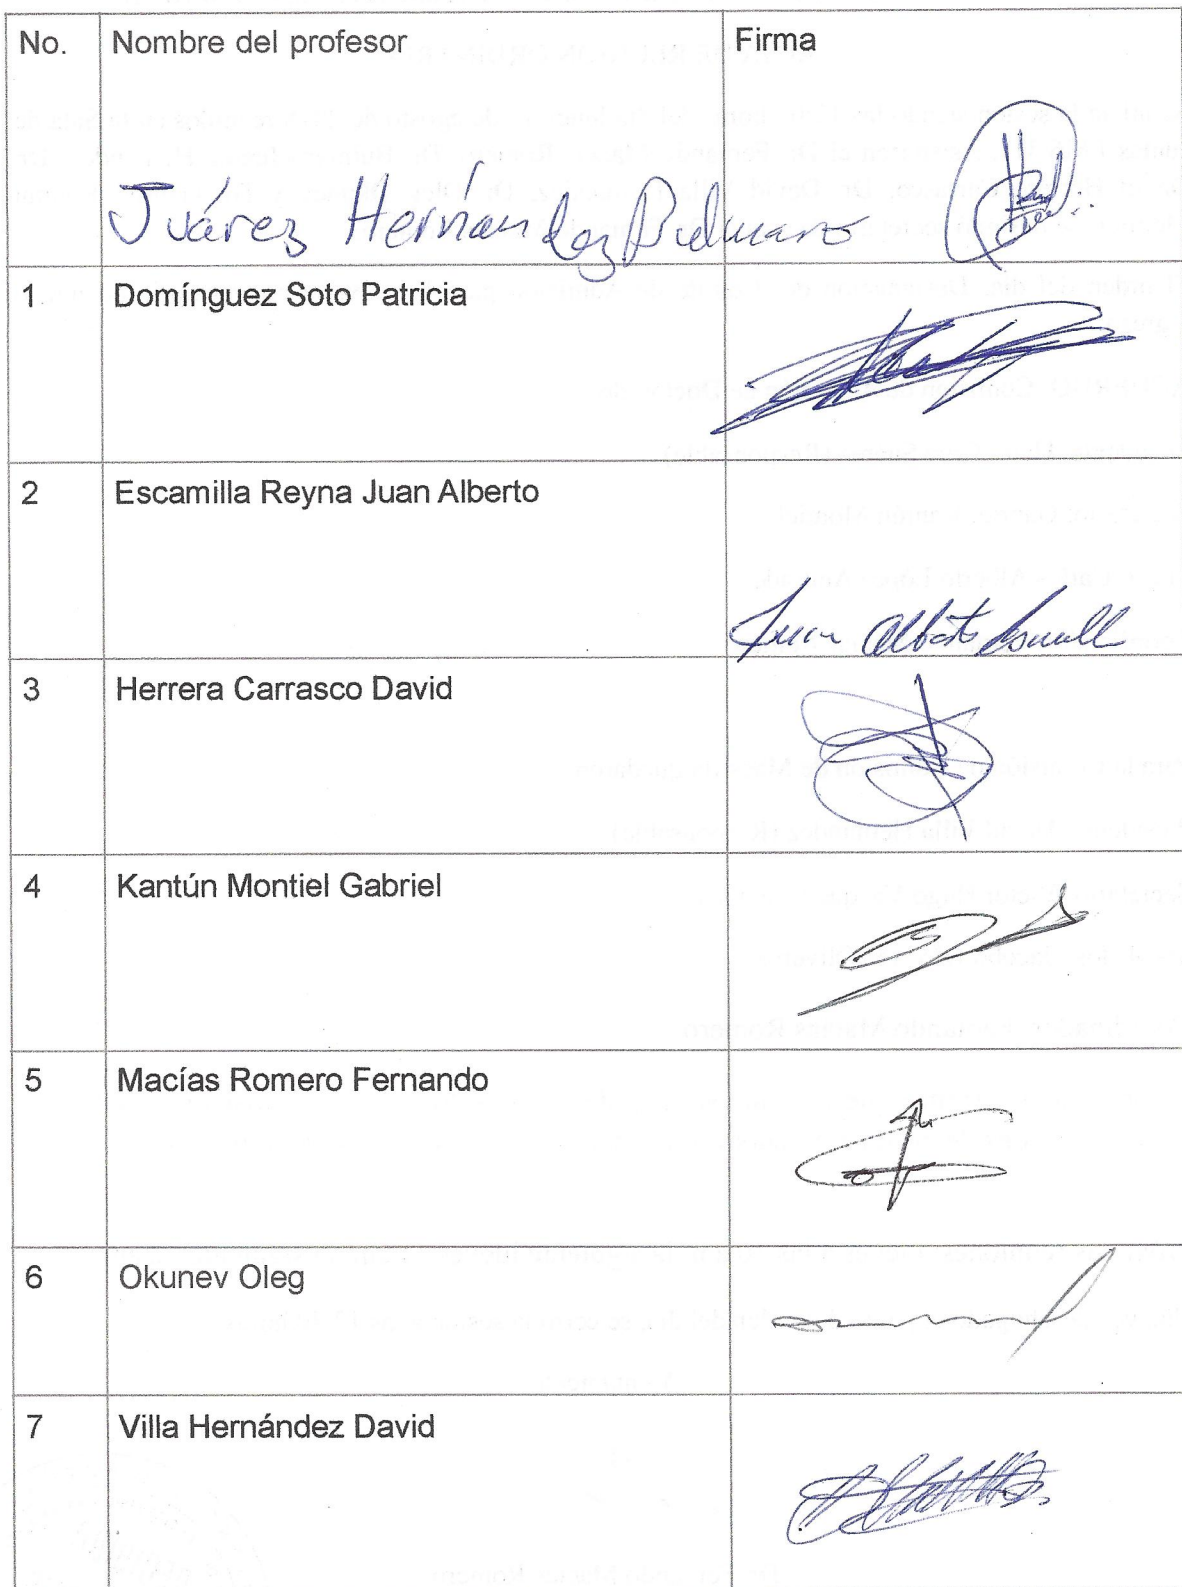 No. Nombre del profesor Firma
Juárez Hernández
1 Domínguez Soto Patricia
2 Escamilla Reyna Juan Alberto
Juan Alberto Escamill
3 Herrera Carrasco David
4 Kantún Montiel Gabriel
5 Macías Romero Fernando
6 Okunev Oleg
7 Villa Hernández David